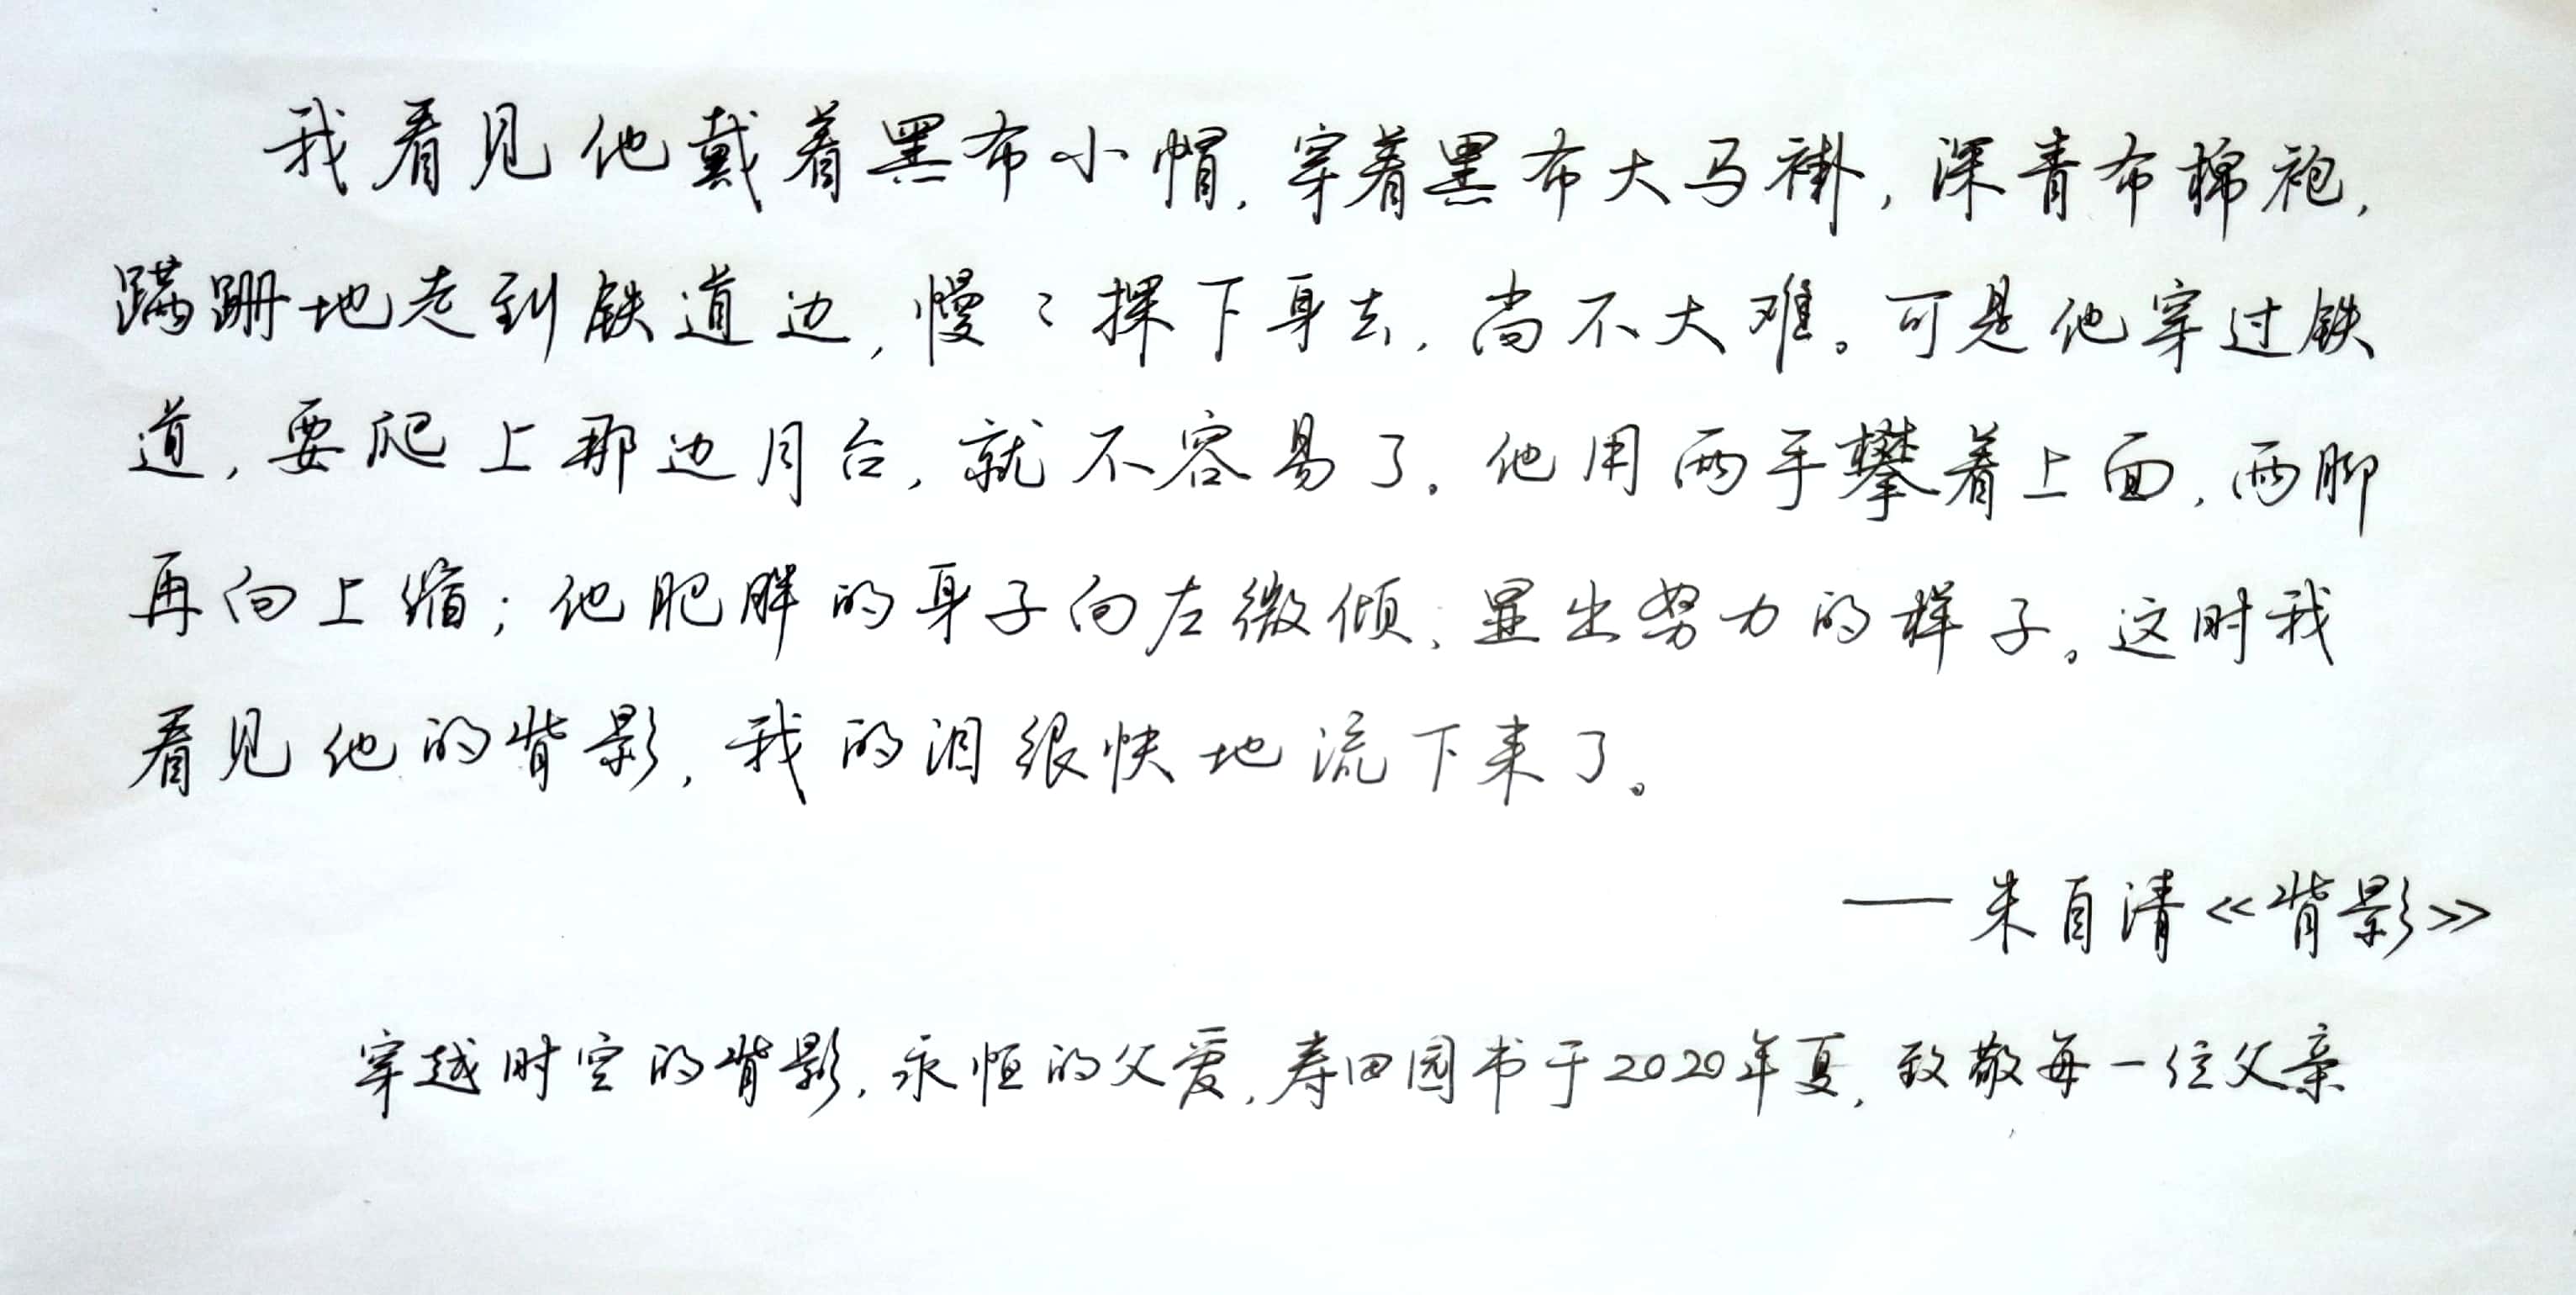 我看见他戴着黑布小帽,穿着黑布大马褂,深青布棉袍,
蹒跚地走到铁道边,慢〻探下身去,尚不大难。可是他穿过铁
道,要爬上那边月台,就不容易了。他用两手攀着上面,两脚
再向上缩;他肥胖的身子向左微倾;显出努力的样子。这时我
看见他的背影,我的泪很快地流下来了。
——朱自清《背影》
穿越时空的背影,永恒的父爱,寿田园书于2020年夏,致敬每一位父亲